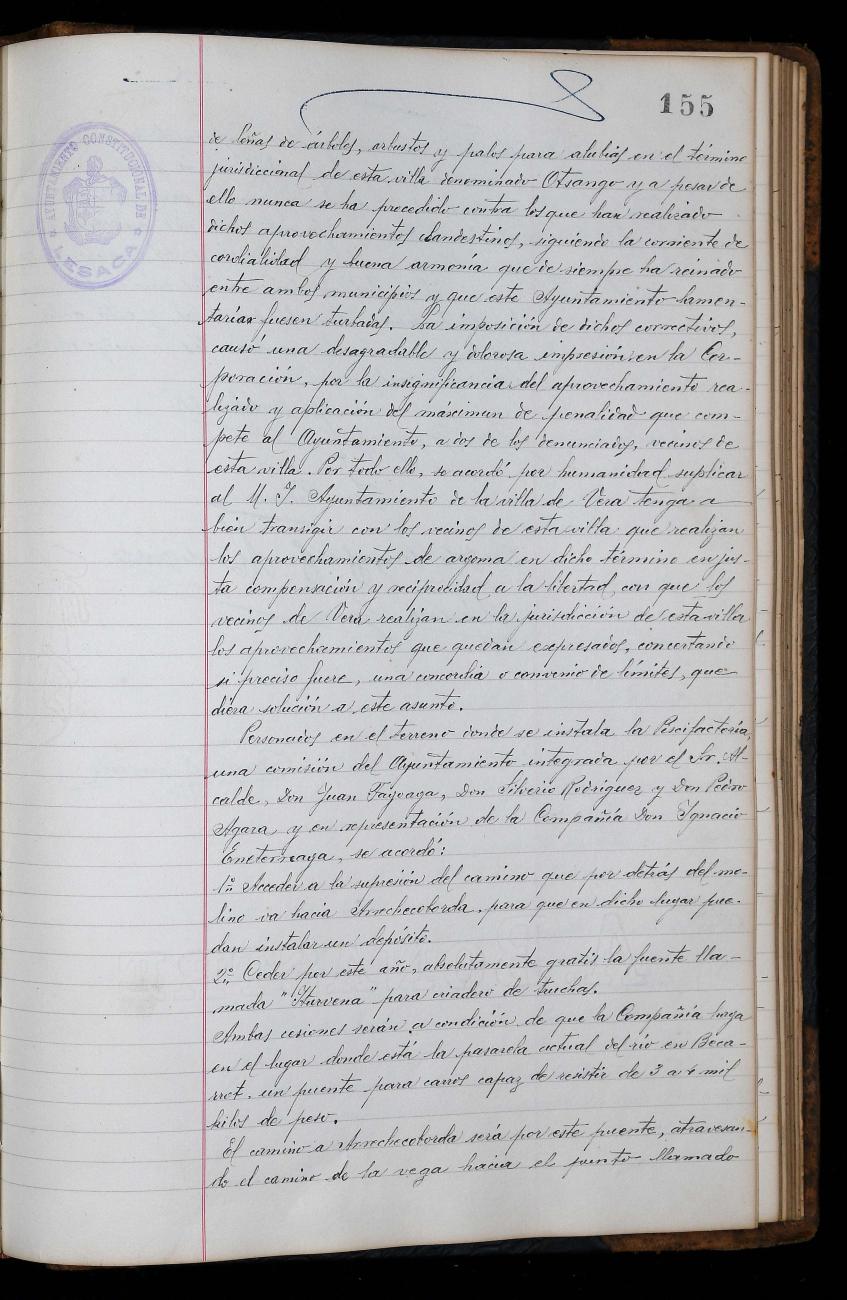 155
AYUNTAMIENTO CONSTITUCIONAL DE
LESACA
de leñas de árboles, arbustos y palos para alubias en el término
jurisdiccional de esta villa denominado Otsango y a pesar de
ello nunca se ha procedido contra los que han realizado
dichos aprovechamientos clandestinos, siguiendo la corriente de
cordialidad y buena armonía que de siempre ha reinado
entre ambos municipios y que este Ayuntamiento lamen-
tarías fuesen turbadas. La imposición de dichos correctivos,
causó una desagradable y dolorosa impresión en la Cor-
poración, por la insignificancia del aprovechamiento rea-
lizado y aplicación del máscimun de penalidad que com-
pete al Ayuntamiento, a dos de los denunciados, vecinos de
esta villa. Por todo ello, se acordó por humanidad suplicar
al M. I. Ayuntamiento de la villa de Vera tenga a
bien transigir con los vecinos de esta villa que realizan
los aprovechamientos de argoma en dicho término en jus-
ta compensación y reciprocidad a la libertad con que los
vecinos de Vera realizan en la jurisdicción de esta villa
los aprovechamientos que quedan expresados, concertando
si preciso fuere, una concordia o convenio de límites, que
diera solución a este asunto.
Personados en el terreno donde se instala la Piscifactoría,
una comisión del Ayuntamiento integrada por el Sr. Al-
calde, Don Juan Tayoaga, Don Silverio Rodriguez y Don Pedro
Agara y en representación de la Compañía Don Ignacio
se acordó:
1º Acceder a la supresión del camino que por detrás del mo-
lino va hacia Arrechecoborda, para que en dicho lugar pue-
dan instalar un depósito.
2º Ceder por este año, absolutamente gratis la fuente lla-
mada "Iturvena" para criadero de truchas.
Ambas cesiones serán a condición de que la Compañía haga
en el lugar donde está la pasarela actual del río en Beca-
rrot, un puente para carros capaz de resistir de 3 a 4 mil
kilos de peso.
El camino a Arrechecoborda será por este puente, atravesan-
do el camino de la vega hacia el punto llamado